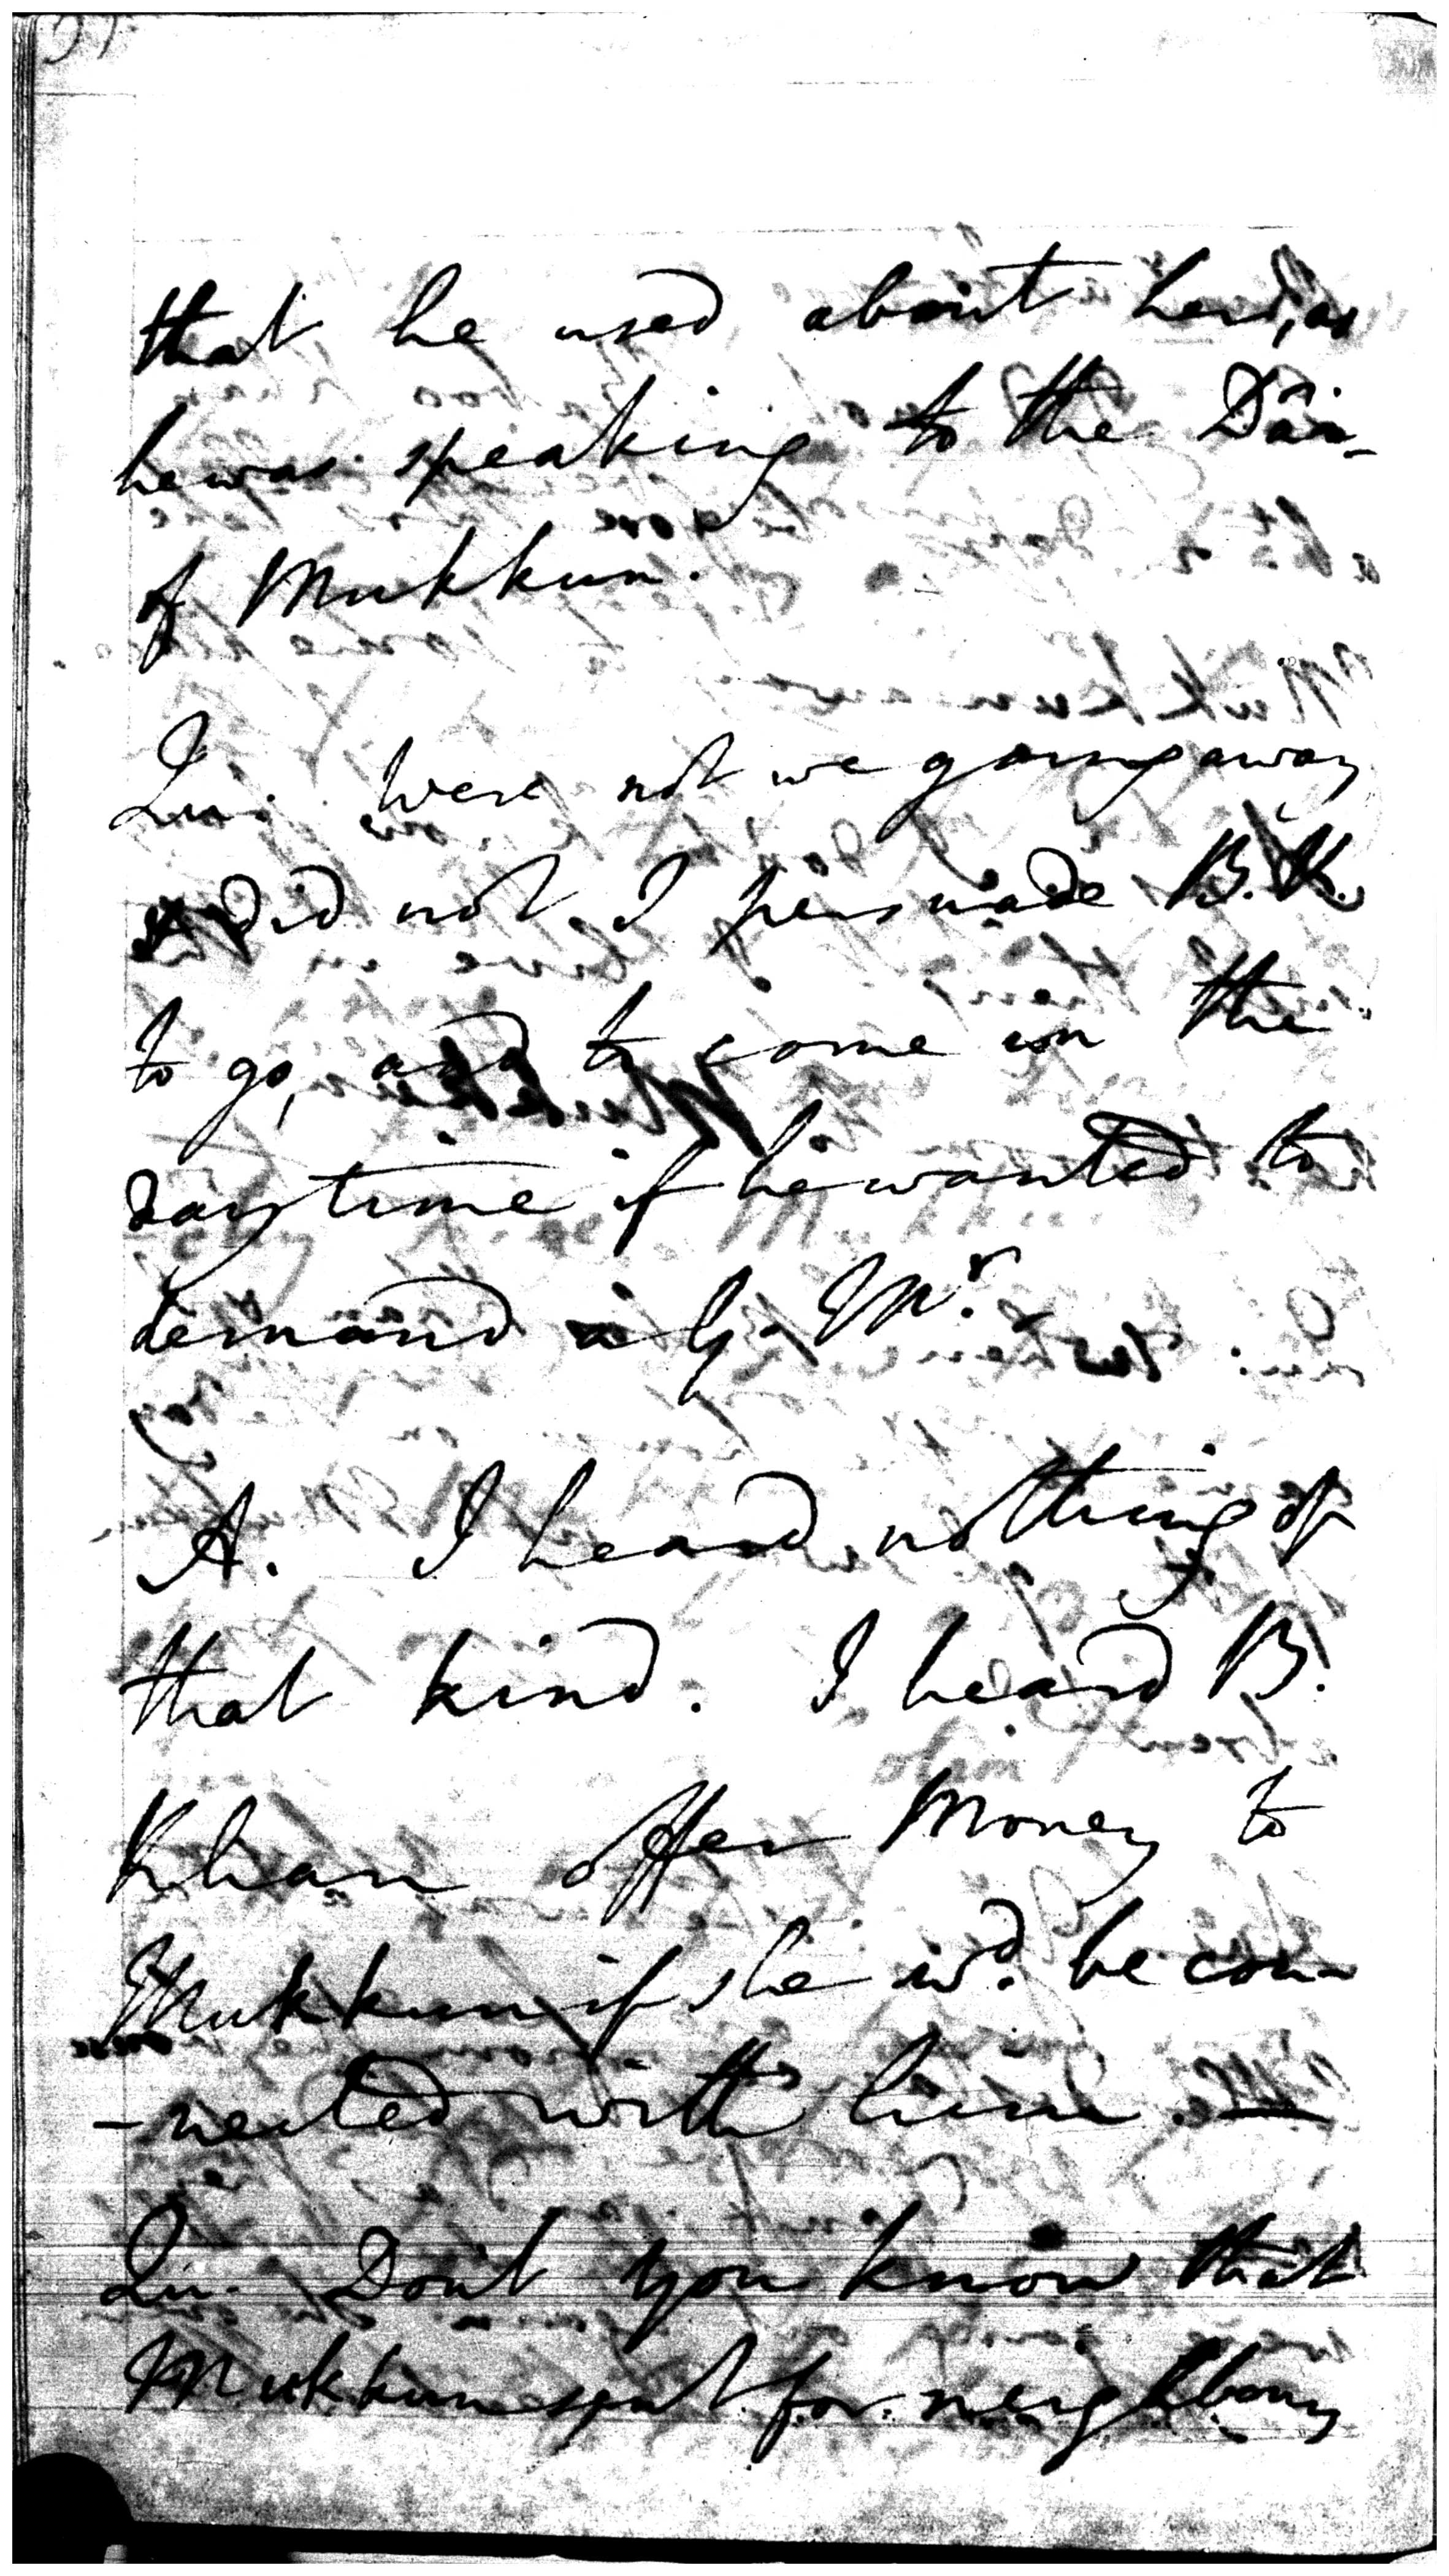 that he used about her, as
he was speaking to the Däi-
of Mukkun.
Qu: Were not we going away
& did not I persuade B. K.
to go, and to come in the
day time if he wanted to
demand a G. Mr.
A. I heard nothing of
that kind. I heard B.
Khan offer Money to
Mukkun if she wd. be con-
-nected with him. —
Qu: Don't you know that
Mukkun sent for neighbours